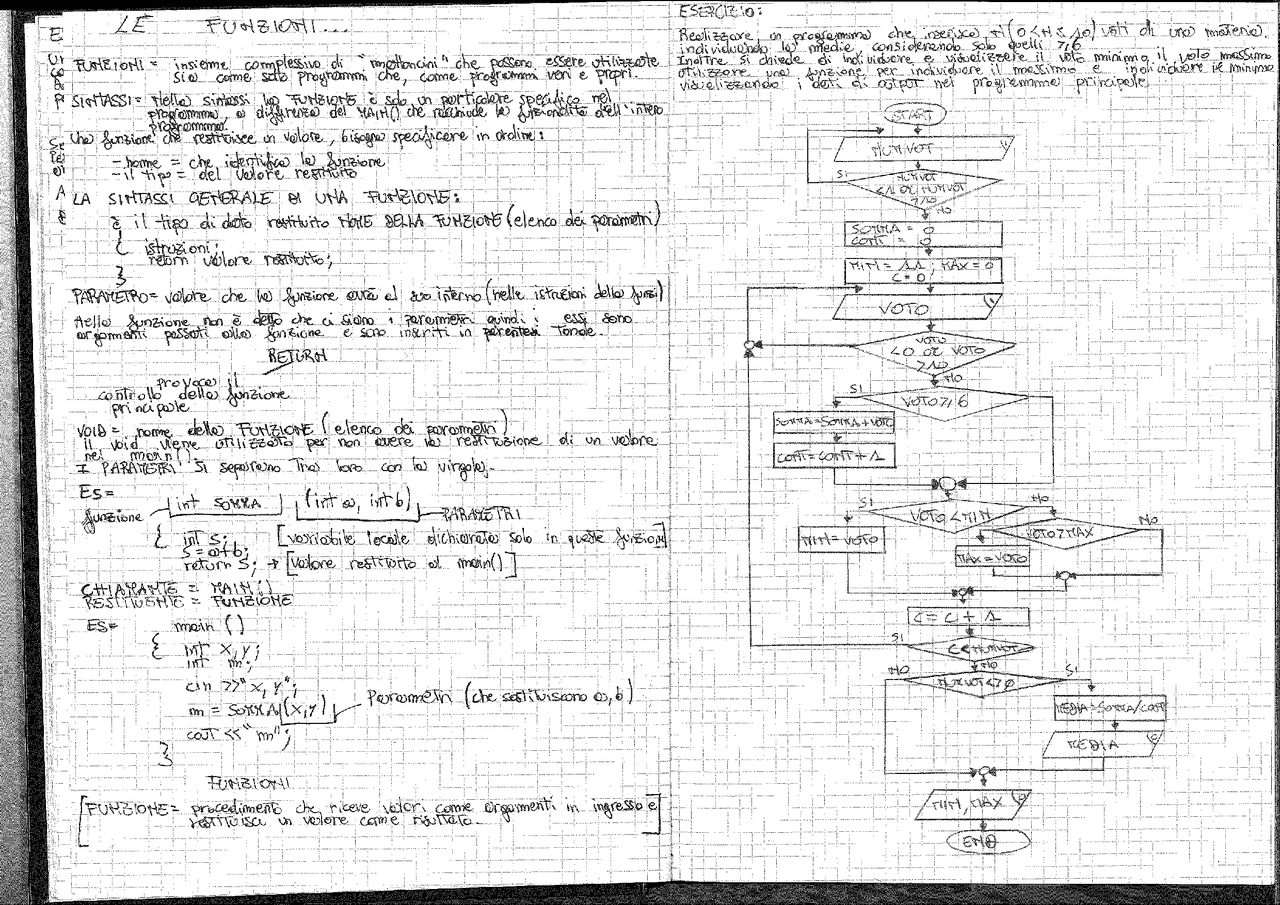 LE FUNZIONI...
FUNZIONI = insieme complessivo di "mattoncini" che possono essere utilizzate
sia come sotto programmi che, come programmi veri e propri.
SINTASSI = Nella sintassi la FUNZIONE è solo un particolare specifico nel
programma, a differenza del MAIN() che racchiude la funzionalità dell'intero
programma.
Una funzione che restituisce un valore, bisogna specificare in ordine:
- nome = che identifica la funzione
- il tipo = del valore restituito
LA SINTASSI GENERALE DI UNA FUNZIONE:
è il tipo di dato restituito NOME DELLA FUNZIONE (elenco dei parametri)
{ istruzioni;
return valore restituito;
}
PARAMETRO = valore che la funzione avrà al suo interno (nelle istruzioni della funzi)
Nella funzione non è detto che ci siano i parametri quindi; essi sono
argomenti passati alla funzione e sono inseriti in parentesi tonde.
RETURN
provoca il
controllo della funzione
principale
VOID = nome della FUNZIONE (elenco dei parametri)
il void viene utilizzato per non avere la restituzione di un valore
nel main()
I PARAMETRI si separano tra loro con la virgola.
ES=
funzione int SOMMA (int a, int b) PARAMETRI
{ int S; [variabile locale dichiarata solo in questa funzione]
S=a+b;
return S; → [valore restituito al main()]
CHIAMANTE = MAIN()
RESTITUENTE = FUNZIONE
ES= main ()
{ int x,y;
int m;
cin >>"x, y";
m = SOMMA (x,y) Parametri (che sostituiscono a,b)
cout <<"m";
}
FUNZIONI
[FUNZIONE = procedimento che riceve valori come argomenti in ingresso e
restituisce un valore come risultato.]
ESERCIZIO:
Realizzare un programma che inserisca N (0<N≤10) voti di una materia.
individuando la media, considerando solo quelli ≥6
Inoltre si chiede di individuare e visualizzare il voto minimo, il voto massimo
Utilizzare una funzione per individuare il massimo e individuare il minimo
visualizzando i dati di output nel programma principale
START
NUMVOT
SI
NUMVOT
<1 or NUMVOT
>10
NO
SOMMA = 0
CONT = 0
MIN = 11, MAX = 0
C = 0
VOTO
VOTO
<0 or VOTO
>10
NO
SI
VOTO≥6
SOMMA=SOMMA+VOTO
CONT=CONT+1
SI
VOTO<MIN
NO
MIN=VOTO
VOTO>MAX
NO
MAX=VOTO
C = C + 1
SI
C<NUMVOT
NO
NO
SI
MEDIA=SOMMA/CONT
MEDIA
MIN, MAX
END